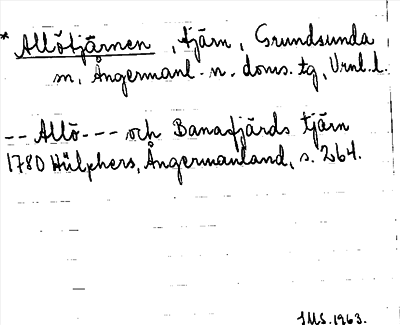 * Allötjärnen, tjärn, Grundsunda
sn, Ångermanl. n. doms. tg, Vrnl. l.
-- Allö --- och Banafjärds tjärn
1780 Hülphers, Ångermanland, s. 264.
JMS. 1963.